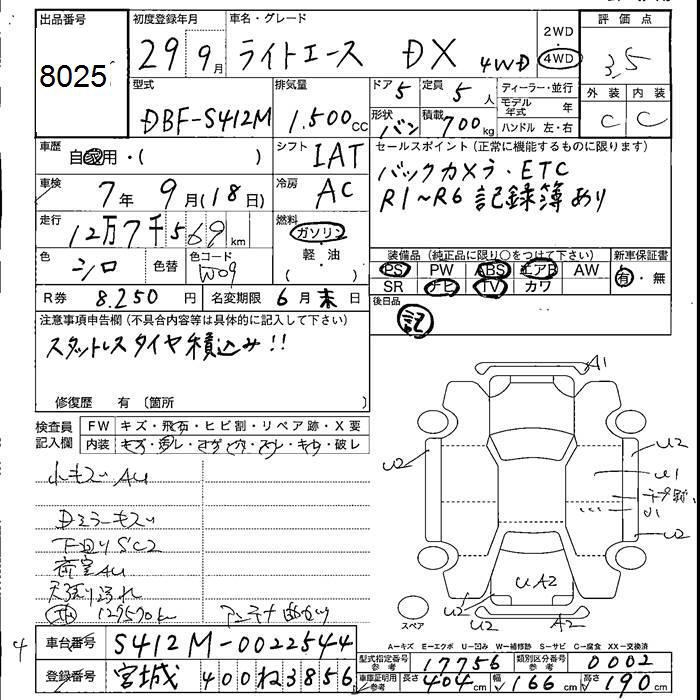 出品番号
8025
初度登録年月
29年 9月
車名・グレード
ライトエース DX 4WD
2WD
4WD
評価点
3.5
外装 内装
C C
型式
DBF-S412M
排気量
1.500cc
ドア 5
定員 5人
形状 バン
積載 700kg
ディーラー・並行
モデル年式 年
ハンドル 左・右
車歴
自家用・( )
シフト
IAT
セールスポイント(正常に機能するものに限ります)
バックカメラ・ETC
R1~R6 記録簿あり
車検
7年 9月(18日)
冷房
AC
走行
12万7千569km
燃料
ガソリン
軽・油
( )
色
シロ
色替
色コード
W09
装備品(純正品に限り○をつけて下さい)
新車保証書
PS PW ABS エアB AW
SR ナビ TV カワ
有・無
R券 8.250円
名変期限 6月末日
後日品
記
注意事項申告欄(不具合内容等は具体的に記入して下さい)
スタットレスタイヤ積込み!!
修復歴 有〔箇所 〕
検査員記入欄
FW キズ・飛石・ヒビ割・リペア跡・X要
内装 キズ・汚レ・コゲ・穴・スレ・キレ・破レ
小キズAU
Dミラーキズ
下回りSC2
荷室AU
天張り汚れ
127570km
A1
U2
U2
U1
U1
U2
UA2
U2
U2
A2
スペア
A=キズ E=エクボ U=凹み W=補修跡 S=サビ C=腐食 XX=交換済
4
車台番号
S412M-0022544
型式指定番号 参考
17756
類別区分番号 参考
0002
登録番号
宮城 400 ね 3856
車庫証明用 参考
長さ 404cm
幅 166cm
高さ 190cm